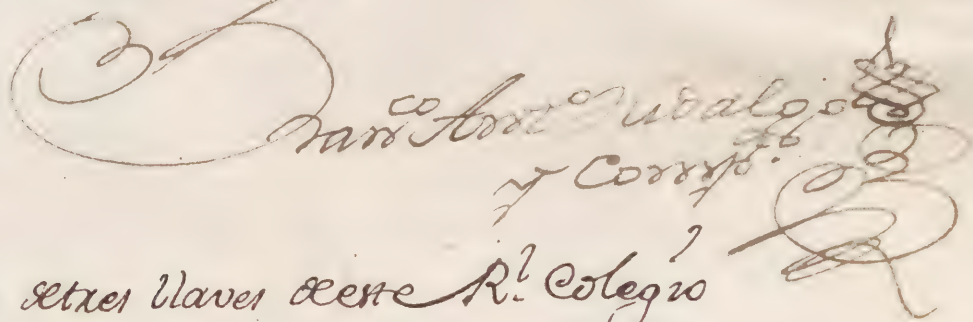 Fran.co Ant.o Hidalgo
y
de tres llaves de este R.l Colegio